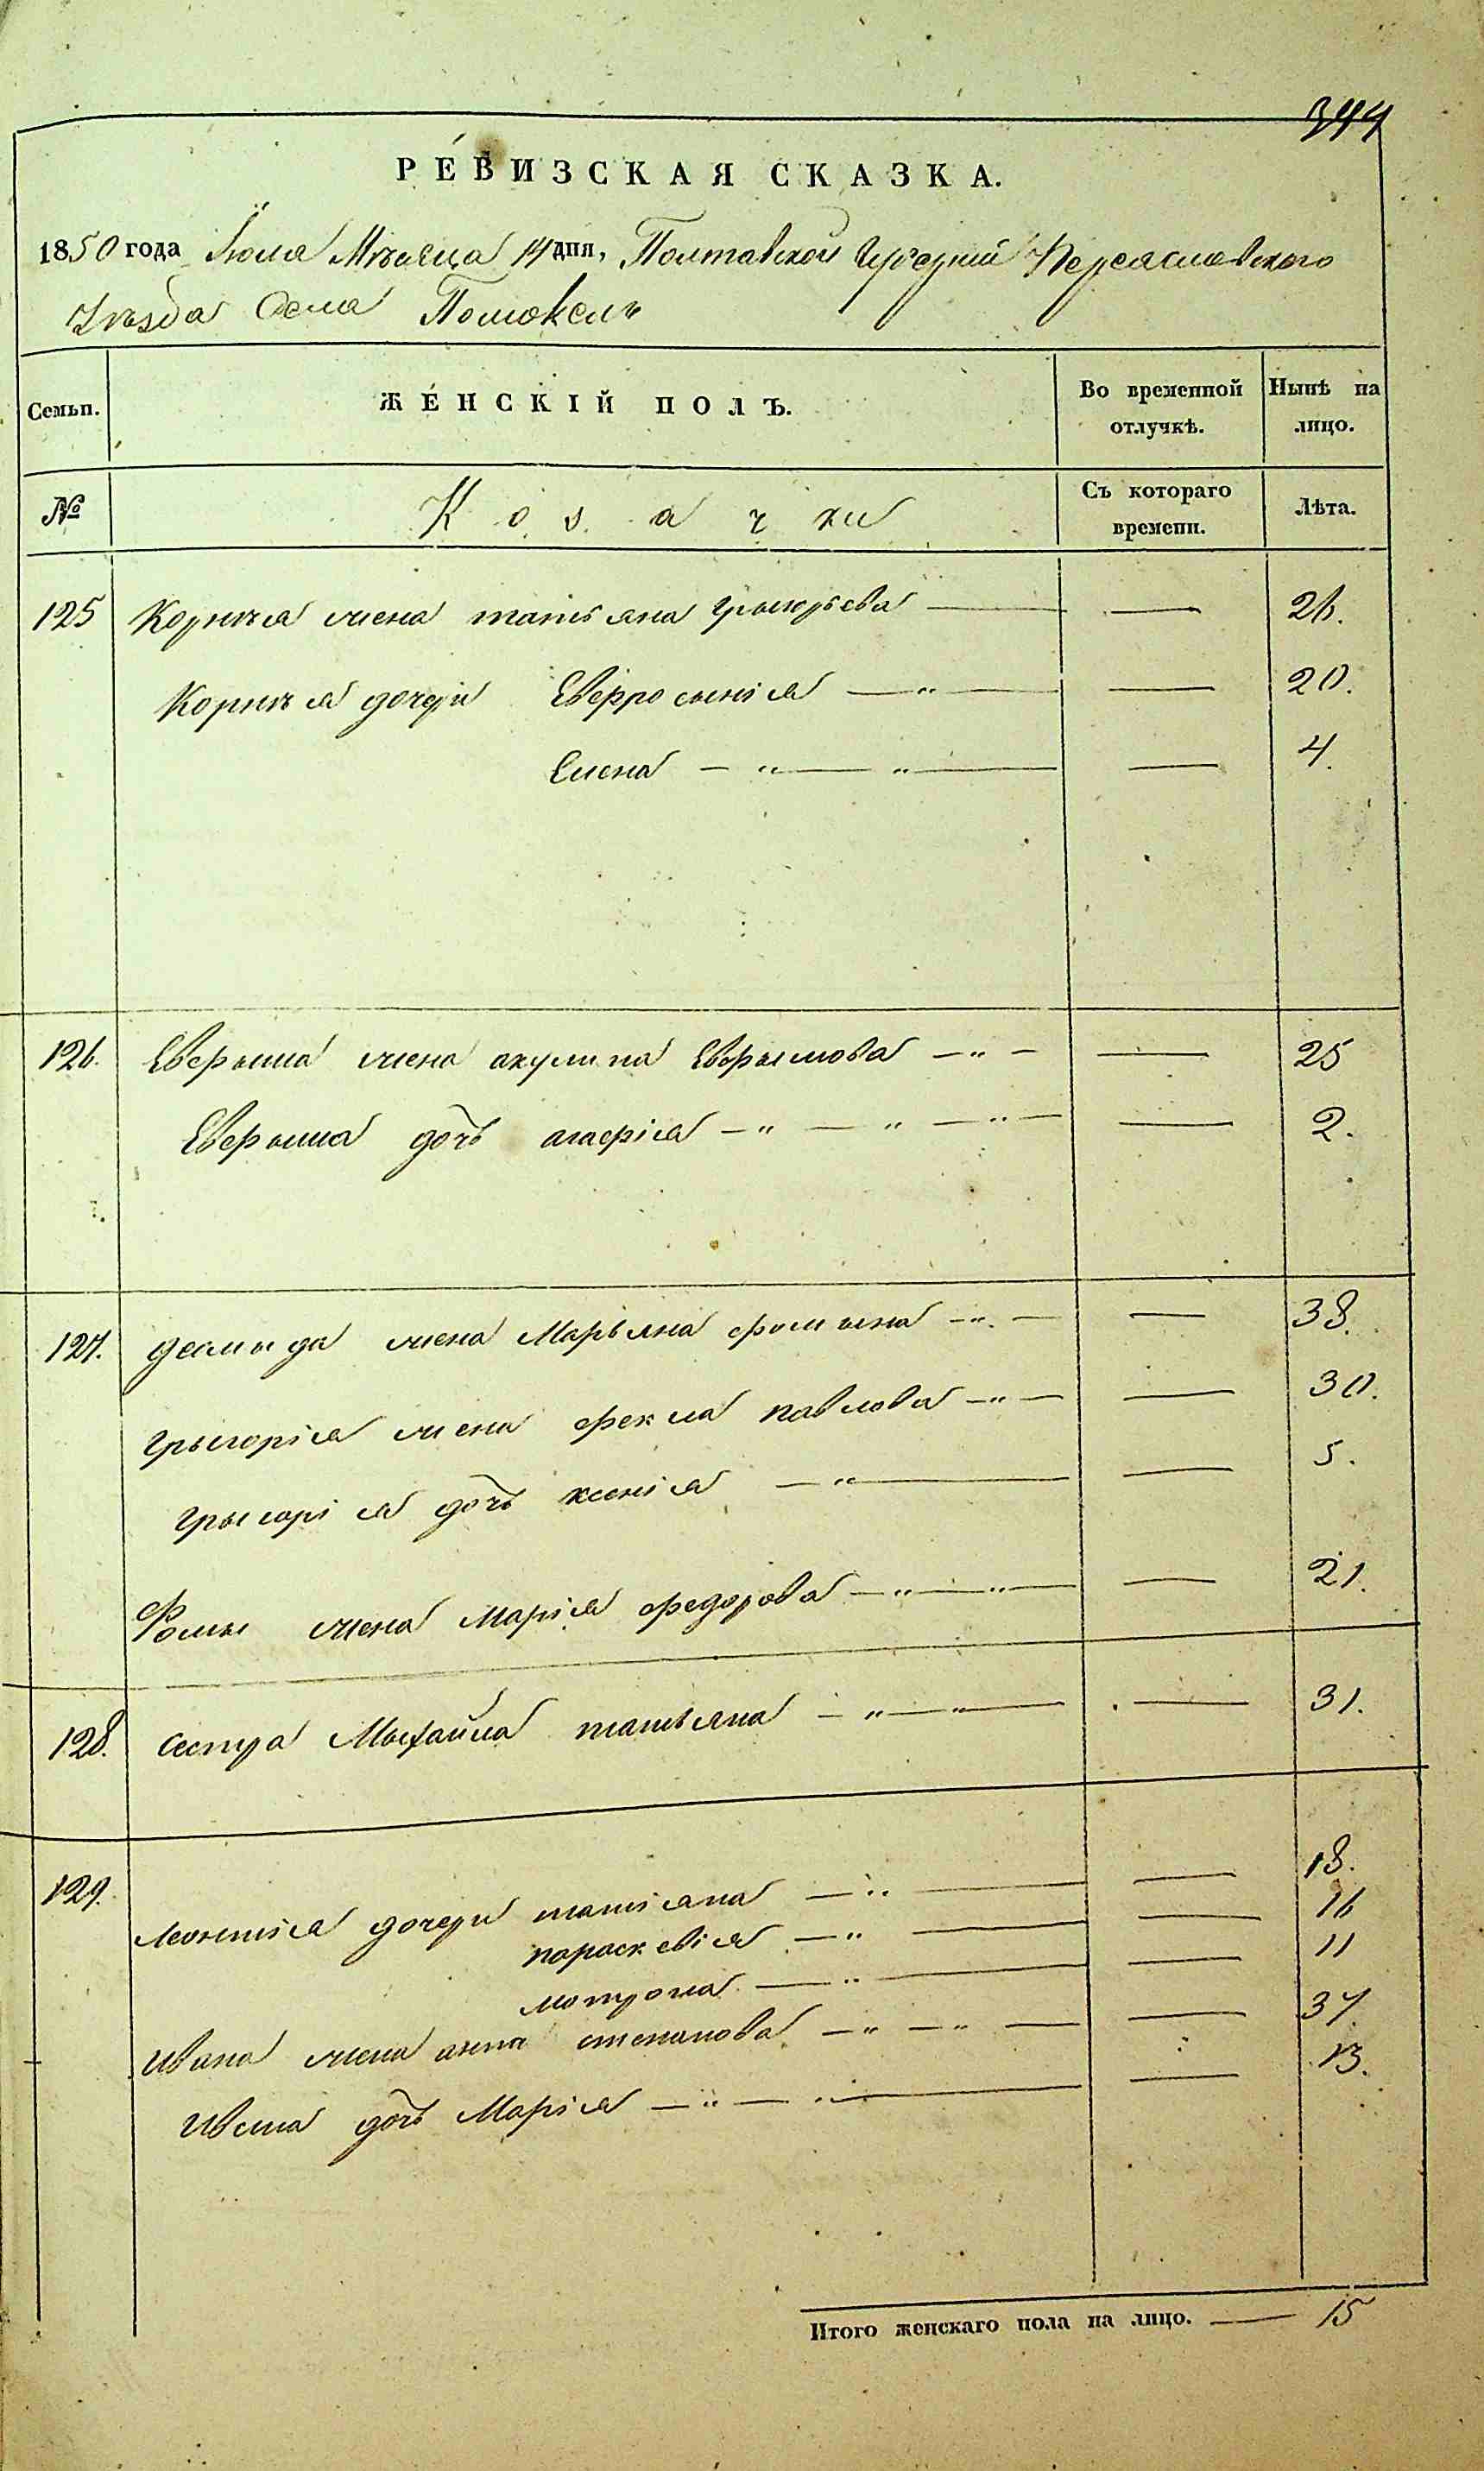 344
РЕВИЗСКАЯ СКАЗКА.
1850 года Июля Мѣсяца 14 дня, Полтавской Губерний Переяславскаго
Уѣзда Села Помоклъ
Семьи. ЖЕНСКІЙ ПОЛЪ. Во временной отлучкѣ. Нынѣ на лицо.
№ Козачки Съ котораго времени. Лѣта.
125 Корнѣя жена татьяна Грыгорьева — — 26.
Корнѣя дочери Евфросинія — „ — — 20.
Елена — „ — „ — — 4.
126. Ефрыма жена акулина Ефрымова — „ — — 25
Ефрыма дочь агафія — „ — „ — „ — — 2.
127. демыда жена Марьяна фомына — „ — — 38.
Грыгорія жена фекла павлова — „ — — 30.
Грыгорія дочь ксенія — „ — — 5.
Фомы жена Марія федорова — „ — „ — — 21.
128. сестра Мыхайла татьяна — „ — „ — — 31.
129. Леонтія дочери татіана — „ — — 18.
параскевія — „ — — 16
мотрона — „ — — 11
Ивана жена анна степанова — „ — „ — — 37.
Ивана дочь Марія — „ — „ — — 13.
Итого женскаго пола на лицо. — 15